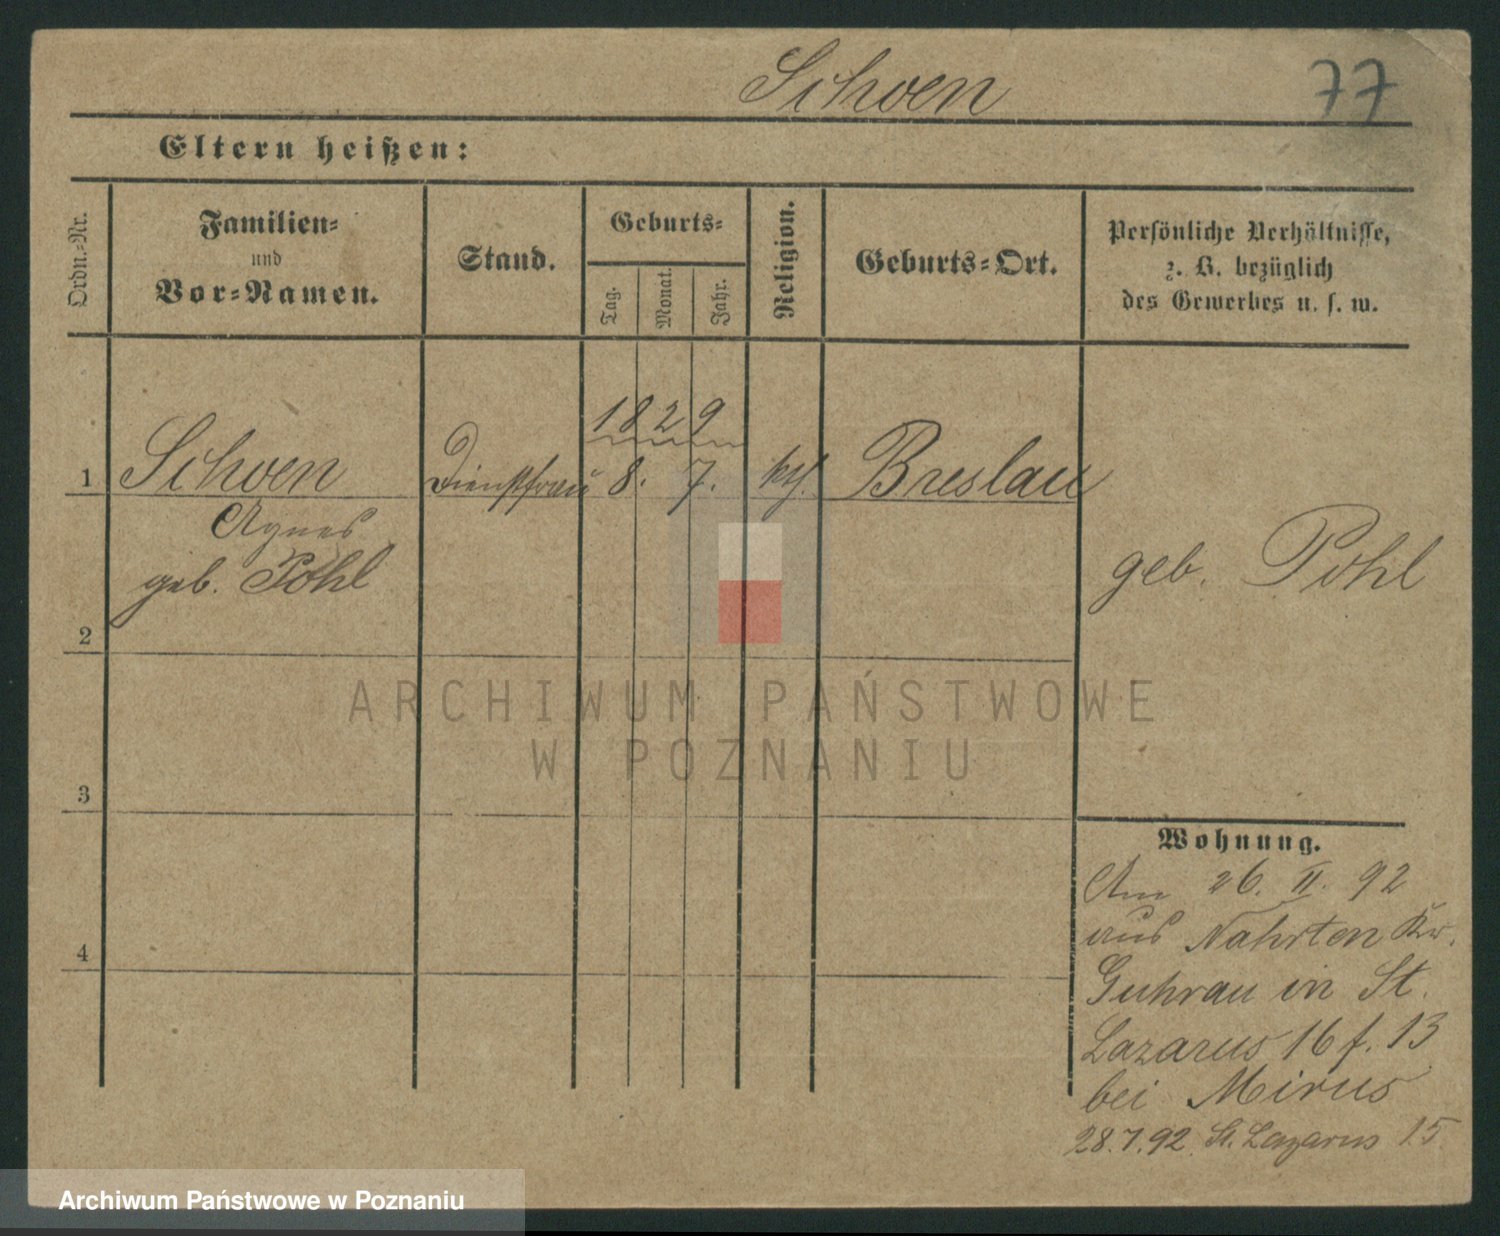 Schoen 77
Eltern heißen:
Ordn.-Nr.
Familien-
und
Vor-Namen.
Stand.
Geburts-
Tag.
Monat.
Jahr.
Religion.
Geburts-Ort.
Persönliche Verhältnisse,
z. B. bezüglich
des Gewerbes u. s. w.
1829
1 Schoen Dienstfrau 8. 7. kth. Breslau
Agnes
geb. Pohl
geb. Pohl
2
3
4
ARCHIWUM PAŃSTWOWE
W POZNANIU
Wohnung.
Am 26. II. 92
aus Nahrten Kr.
Guhrau in St.
Lazarus 16 f. 13
bei Mirus
28.7.92. St. Lazarus 15.
Archiwum Państwowe w Poznaniu